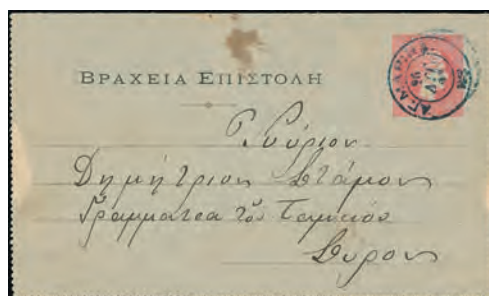 ΒΡΑΧΕΙΑ ΕΠΙΣΤΟΛΗ
Κύριον
Δημήτριον Στάμου
Γραμματέα τοῦ Ταμείου